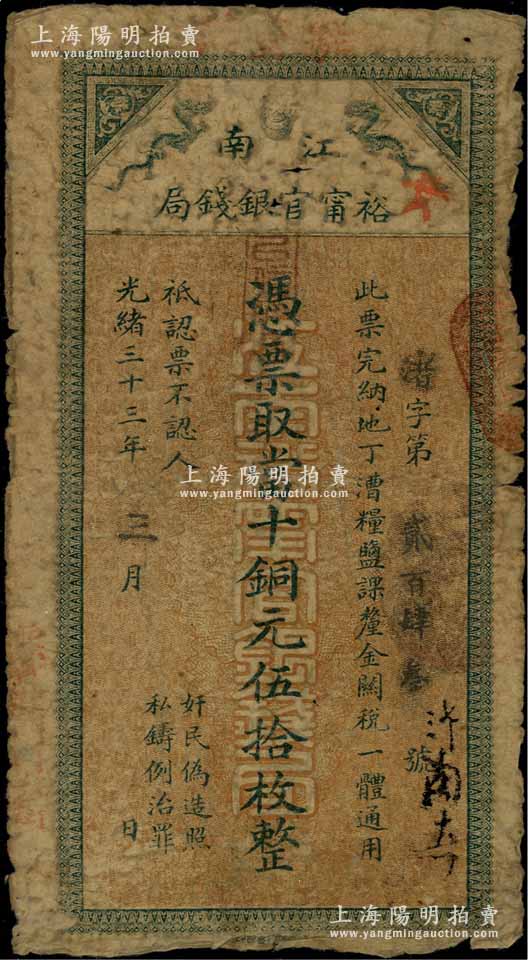 上海陽明拍賣
www.yangmingauction.com
上海陽明拍賣
www.yangmingauction.com
江南
裕甯官銀錢局
字第貳百肆叁號
此票完納地丁漕糧鹽課釐金關稅一體通用
憑票取當十銅元伍拾枚整
祗認票不認人
光緒三十三年三月日
奸民偽造照
私鑄例治罪
上海陽明拍賣
www.yangmingauction.com
上海陽明拍賣
www.yangmingauction.com